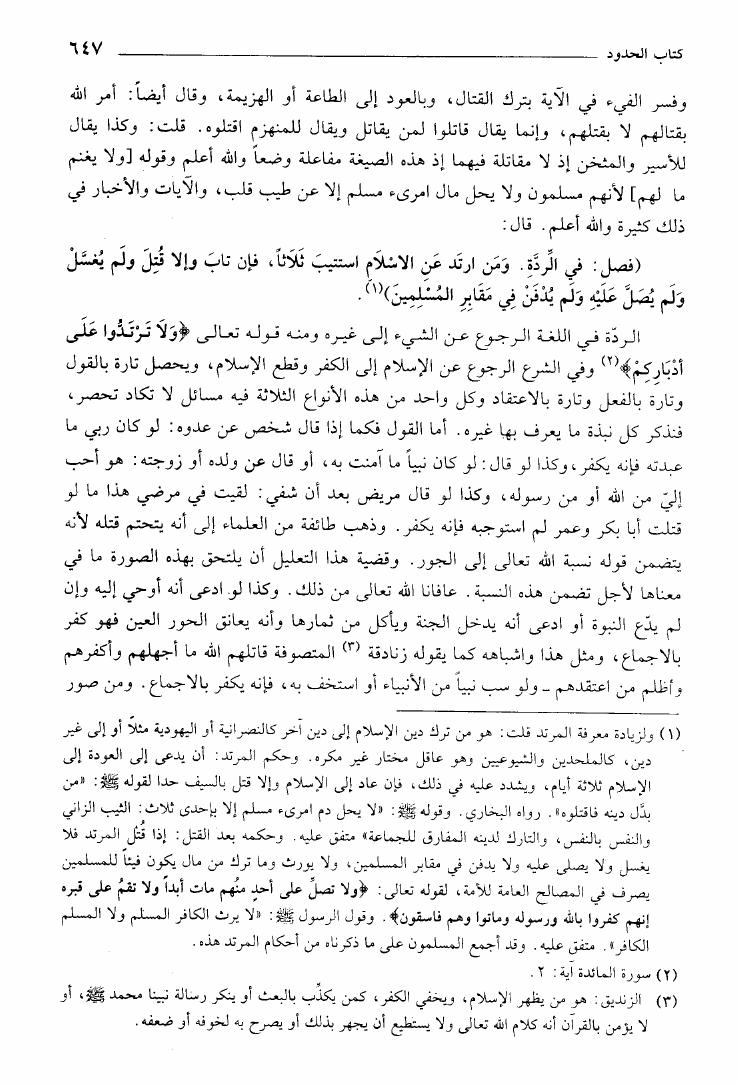 كتاب الحدود ٦٤٧
وفسر الفيء في الآية بترك القتال، وبالعود إلى الطاعة أو الهزيمة، وقال أيضاً: أمر الله
بقتالهم لا بقتلهم، وإنما يقال قاتلوا لمن يقاتل ويقال للمنهزم اقتلوه. قلت: وكذا يقال
للأسير والمثخن إذ لا مقاتلة فيهما إذ هذه الصيغة مفاعلة وضعاً والله أعلم وقوله [ولا يغنم
ما لهم] لأنهم مسلمون ولا يحل مال امرىء مسلم إلا عن طيب قلب، والآيات والأخبار في
ذلك كثيرة والله أعلم. قال:
(فصل: في الرِّدَّةِ. وَمَن ارتَد عَنِ الاسْلَامِ استتيبَ ثَلَاثاً، فإن تابَ وإلا قُتِلَ ولَم يُغسَّلْ
وَلَم يُصَلَّ عَلَيْهِ وَلَم يُدْفَنْ فِي مَقَابِرِ المُسْلِمِينَ)(١).
الردّة في اللغة الرجوع عن الشيء إلى غيره ومنه قوله تعالى ﴿وَلَا تَرْتَدُّوا عَلَى
أَدْبَارِكِمْ﴾(٢) وفي الشرع الرجوع عن الإسلام إلى الكفر وقطع الإسلام، ويحصل تارة بالقول
وتارة بالفعل وتارة بالاعتقاد وكل واحد من هذه الأنواع الثلاثة فيه مسائل لا تكاد تحصر،
فنذكر كل نبذة ما يعرف بها غيره. أما القول فكما إذا قال شخص عن عدوه: لو كان ربي ما
عبدته فإنه يكفر، وكذا لو قال: لو كان نبياً ما آمنت به، أو قال عن ولده أو زوجته: هو أحب
إليّ من الله أو من رسوله، وكذا لو قال مريض بعد أن شفي: لقيت في مرضي هذا ما لو
قتلت أبا بكر وعمر لم استوجبه فإنه يكفر. وذهب طائفة من العلماء إلى أنه يتحتم قتله لأنه
يتضمن قوله نسبة الله تعالى إلى الجور. وقضية هذا التعليل أن يلتحق بهذه الصورة ما في
معناها لأجل تضمن هذه النسبة. عافانا الله تعالى من ذلك. وكذا لو ادعى أنه أوحي إليه وإن
لم يدّع النبوة أو ادعى أنه يدخل الجنة ويأكل من ثمارها وأنه يعانق الحور العين فهو كفر
بالاجماع، ومثل هذا واشباهه كما يقوله زنادقة (٣) المتصوفة قاتلهم الله ما أجهلهم وأكفرهم
وأظلم من اعتقدهم - ولو سب نبياً من الأنبياء أو استخف به، فإنه يكفر بالاجماع. ومن صور
(١) ولزيادة معرفة المرتد قلت: هو من ترك دين الإسلام إلى دين آخر كالنصرانية أو اليهودية مثلاً أو إلى غير
دين، كالملحدين والشيوعيين وهو عاقل مختار غير مكره. وحكم المرتد: أن يدعى إلى العودة إلى
الإسلام ثلاثة أيام، ويشدد عليه في ذلك، فإن عاد إلى الإسلام وإلا قتل بالسيف حدا لقوله ﷺ: «من
بدَّل دينه فاقتلوه». رواه البخاري. وقوله ﷺ: «لا يحل دم امرىء مسلم إلا بإحدى ثلاث: الثيب الزاني
والنفس بالنفس، والتارك لدينه المفارق للجماعة» متفق عليه. وحكمه بعد القتل: إذا قُتل المرتد فلا
يغسل ولا يصلى عليه ولا يدفن في مقابر المسلمين، ولا يورث وما ترك من مال يكون فيئاً للمسلمين
يصرف في المصالح العامة للأمة، لقوله تعالى: ﴿ولا تصلِّ على أحدٍ منهُم مات أبداً ولا تقمُ على قبره
إنهم كفروا بالله ورسوله وماتوا وهم فاسقون﴾. وقول الرسول ﷺ: «لا يرث الكافر المسلم ولا المسلم
الكافر». متفق عليه. وقد أجمع المسلمون على ما ذكرناه من أحكام المرتد هذه.
(٢) سورة المائدة آية: ٢.
(٣) الزنديق: هو من يظهر الإسلام، ويخفي الكفر، كمن يكذِّب بالبعث أو ينكر رسالة نبينا محمد ﷺ، أو
لا يؤمن بالقرآن أنه كلام الله تعالى ولا يستطيع أن يجهر بذلك أو يصرح به لخوفه أو ضعفه.